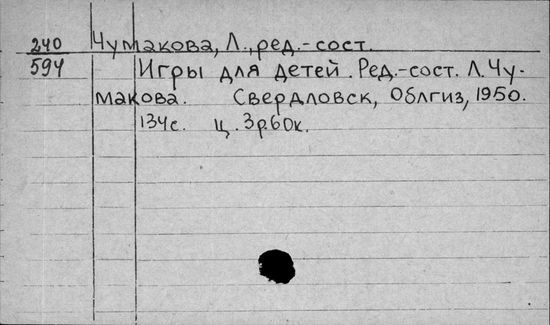 240 Чумакова, Л., ред.-сост.
594 Игры для детей. Ред.-сост. Л. Чу-
макова. Свердловск, Облгиз, 1950.
134с. ц. 3р.60к.